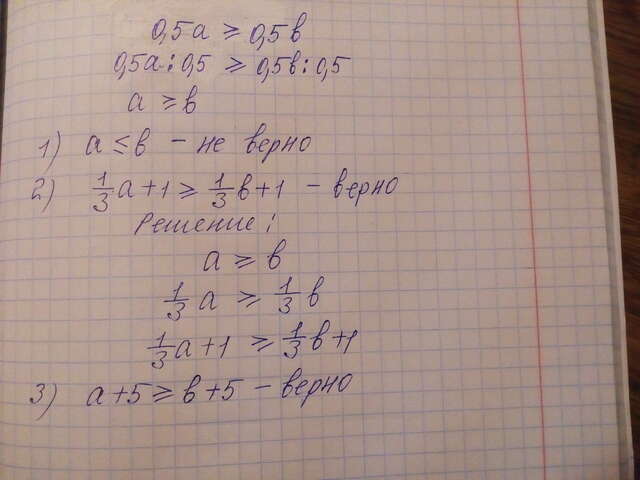 0,5a ≥ 0,5в
0,5a : 0,5 ≥ 0,5в : 0,5
a ≥ в
1) a ≤ в - не верно
2) 1/3 a+1 ≥ 1/3 в+1 - верно
Решение:
a ≥ в
1/3 a ≥ 1/3 в
1/3 a+1 ≥ 1/3 в+1
3) a+5 ≥ в+5 - верно